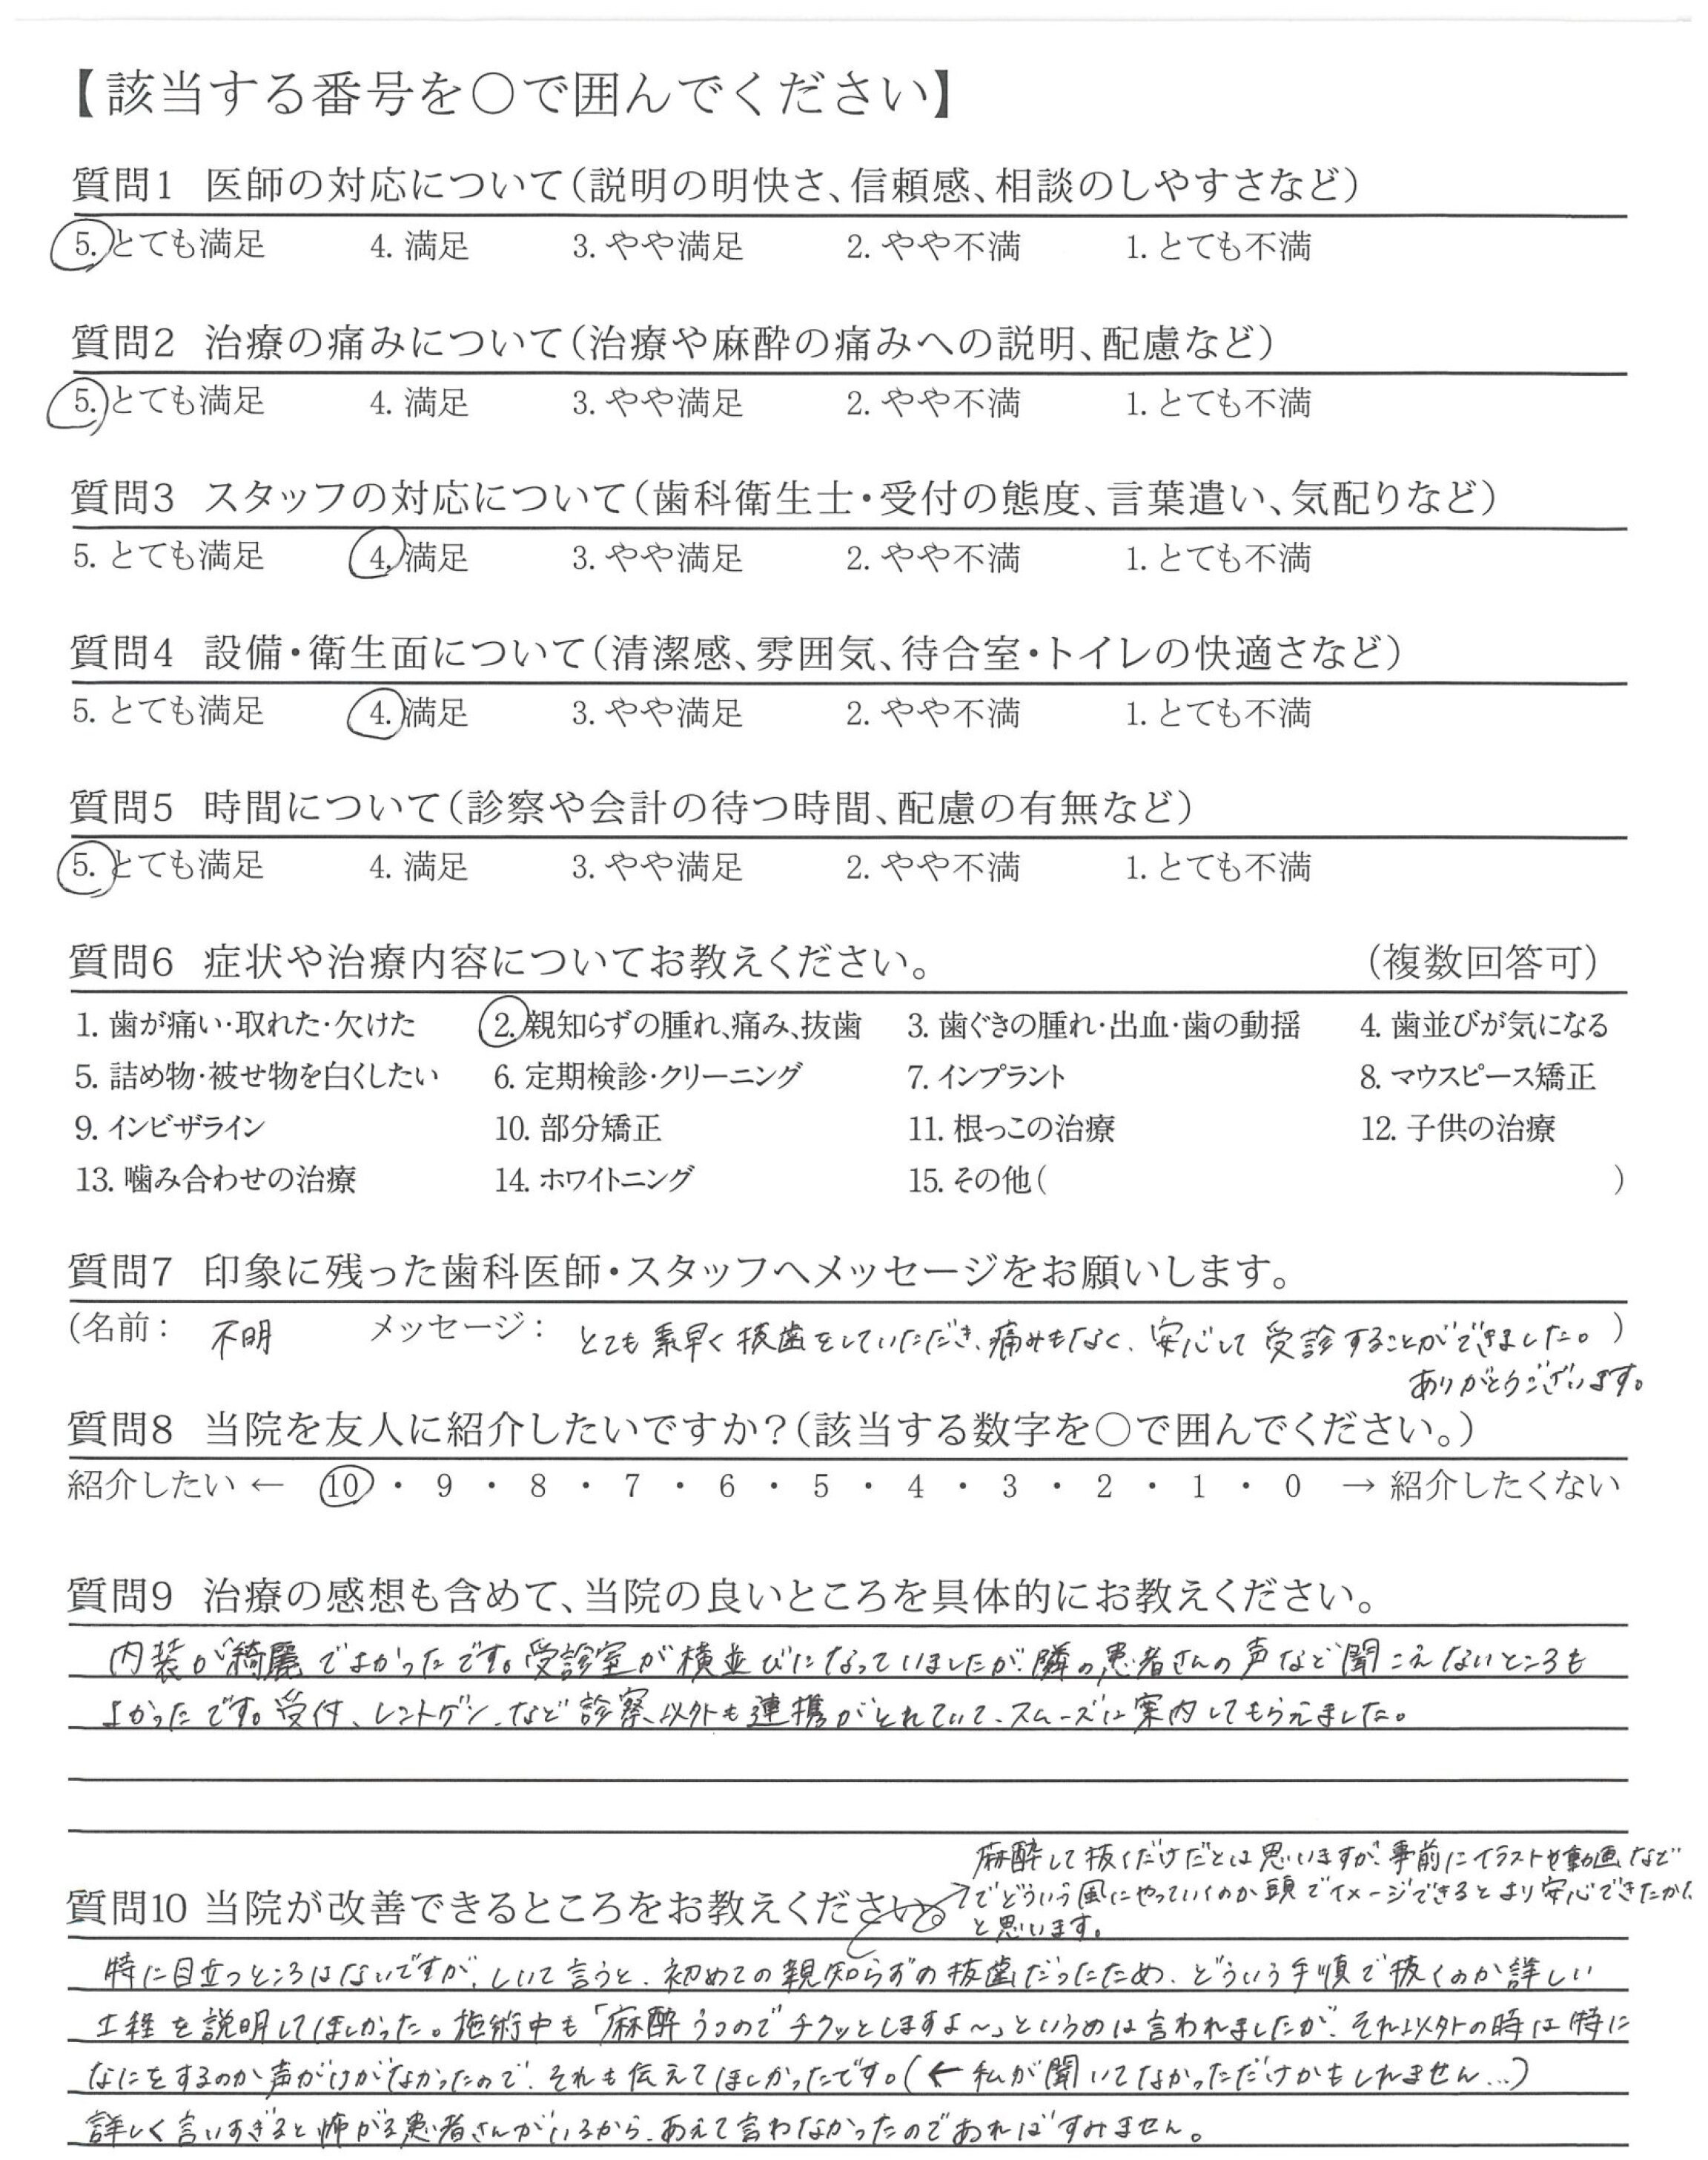 【該当する番号を○で囲んでください】
質問1 医師の対応について(説明の明快さ、信頼感、相談のしやすさなど)
5. とても満足 4. 満足 3. やや満足 2. やや不満 1. とても不満
質問2 治療の痛みについて(治療や麻酔の痛みへの説明、配慮など)
5. とても満足 4. 満足 3. やや満足 2. やや不満 1. とても不満
質問3 スタッフの対応について(歯科衛生士・受付の態度、言葉遣い、気配りなど)
5. とても満足 4. 満足 3. やや満足 2. やや不満 1. とても不満
質問4 設備・衛生面について(清潔感、雰囲気、待合室・トイレの快適さなど)
5. とても満足 4. 満足 3. やや満足 2. やや不満 1. とても不満
質問5 時間について(診察や会計の待つ時間、配慮の有無など)
5. とても満足 4. 満足 3. やや満足 2. やや不満 1. とても不満
質問6 症状や治療内容についてお教えください。 (複数回答可)
1. 歯が痛い・取れた・欠けた 2. 親知らずの腫れ、痛み、抜歯 3. 歯ぐきの腫れ・出血・歯の動揺 4. 歯並びが気になる
5. 詰め物・被せ物を白くしたい 6. 定期検診・クリーニング 7. インプラント 8. マウスピース矯正
9. インビザライン 10. 部分矯正 11. 根っこの治療 12. 子供の治療
13. 噛み合わせの治療 14. ホワイトニング 15. その他( )
質問7 印象に残った歯科医師・スタッフへメッセージをお願いします。
(名前: 不明 メッセージ: とても素早く抜歯をしていただき、痛みもなく、安心して受診することができました。)
ありがとうございます。
質問8 当院を友人に紹介したいですか?(該当する数字を○で囲んでください。)
紹介したい ← 10 ・ 9 ・ 8 ・ 7 ・ 6 ・ 5 ・ 4 ・ 3 ・ 2 ・ 1 ・ 0 → 紹介したくない
質問9 治療の感想も含めて、当院の良いところを具体的にお教えください。
内装が綺麗でよかったです。受診室が横並びになっていましたが、隣の患者さんの声など聞こえないところも
よかったです。受付、レントゲン、など診察以外も連携がとれていて、スムーズに案内してもらえました。
麻酔して抜くだけだとは思いますが、事前にイラストや動画など
でどういう風にやっていくのか頭でイメージできるとより安心できたかな
と思います。
質問10 当院が改善できるところをお教えください。
特に目立つところはないですが、しいて言うと、初めての親知らずの抜歯だったため、どういう手順で抜くのか詳しい
工程を説明してほしかった。施術中も「麻酔うつのでチクッとしますよ〜」というのは言われましたが、それ以外の時は特に
なにをするのか声がけがなかったので、それも伝えてほしかったです。(← 私が聞いてなかっただけかもしれません...)
詳しく言いすぎると怖がる患者さんがいるから、あえて言わなかったのであればすみません。